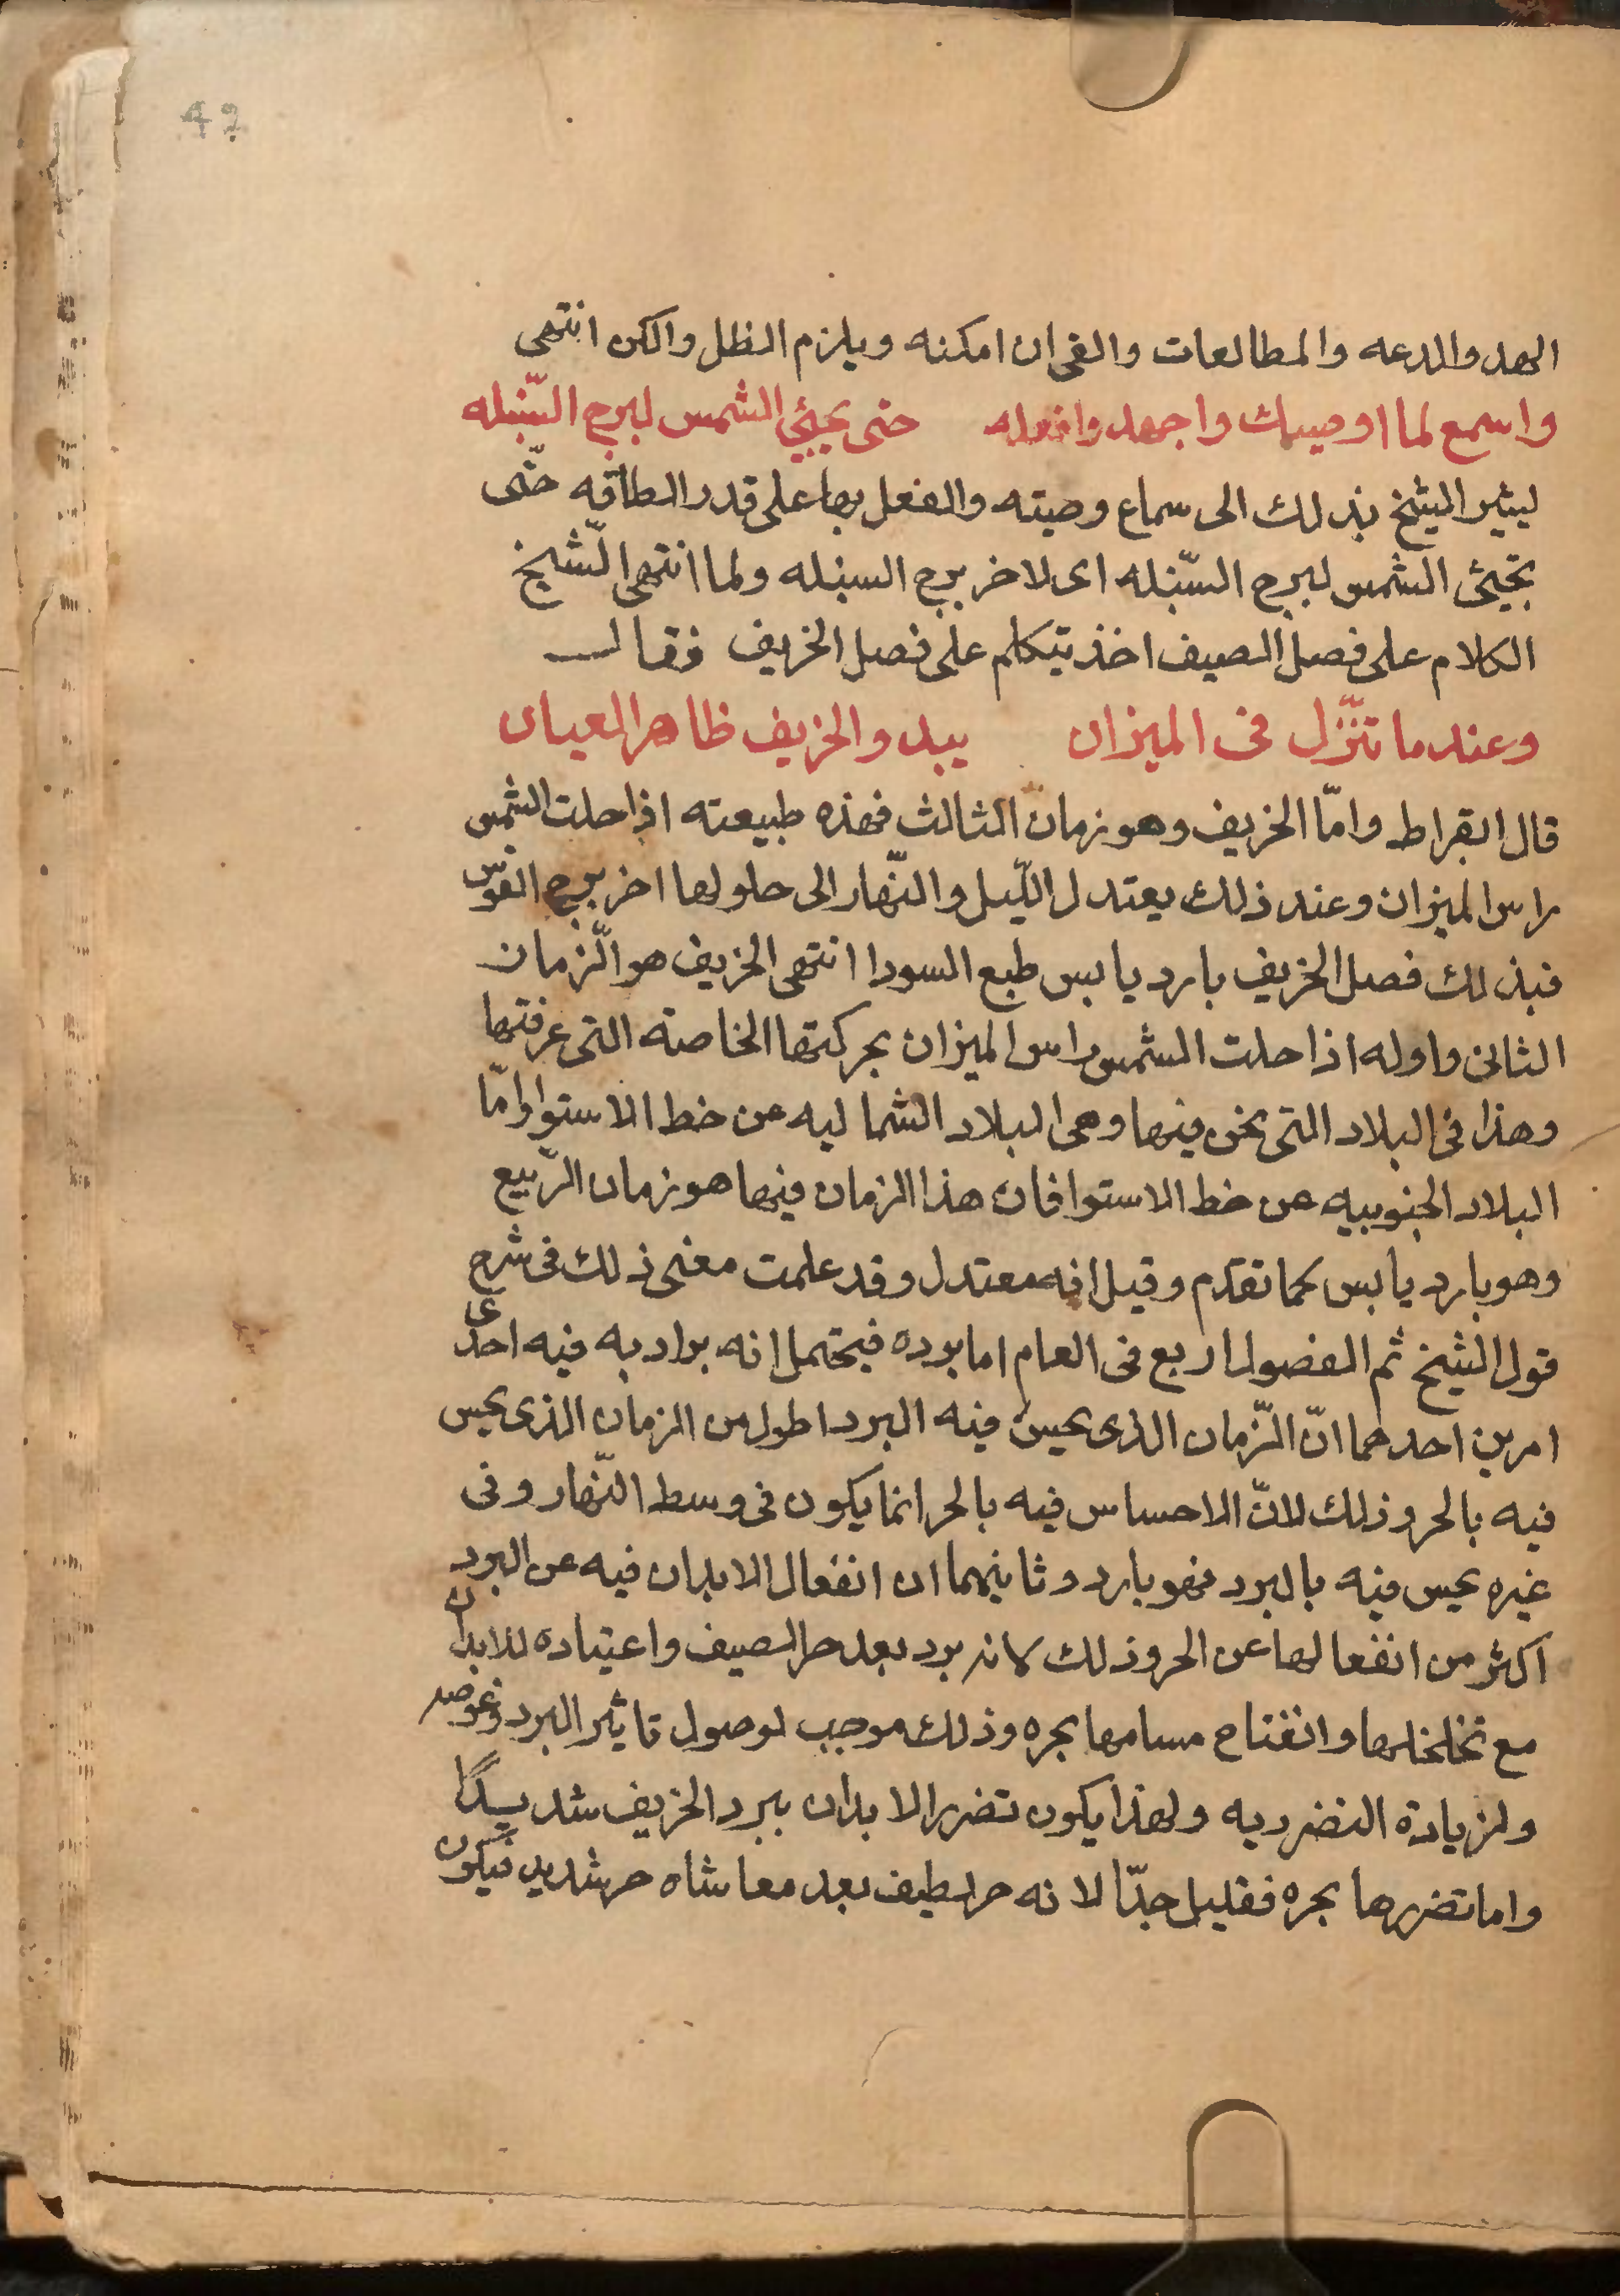 42
الهد والدعه والمطالعات والقى ان امكنه ويلزم الظل والكن انتهى
واسمع لما اوصيك واجهد وافعله حتى يجيئ الشمس لبرج السّنبله
ليثير الشيخ بذلك الى سماع وصيته والفعل بها على قدر الطاقه حتّى
تجيئ الشمس لبرج السّنبله اى لاخر برج السنبله ولما انتهى الشّيخ
الكلام على فصل الصيف اخذ يتكلم على فصل الخريف فقال
وعندما تنزّل فى الميزان يبدو الخريف ظاهر العيان
قال ابقراط وامّا الخريف وهو زمان الثالث فهذه طبيعته اذا حلت الشمس
راس الميزان وعند ذلك يعتدل اللّيل والنّهار الى حلولها اخر برج القوس
فبذلك فصل الخريف بارد يابس طبع السودا انتهى الخريف هو الزّمان
الثانى واوله اذا حلت الشمس راس الميزان بحركتها الخاصة التى عرفتها
وهذا فى البلاد التى نحن فيها وهى البلاد الشماليه عن خط الاستوا وامّا
البلاد الجنوبيه عن خط الاستوا فان هذا الزمان فيها هو زمان الرّبيع
وهو بارد يابس كما تقدم وقيل انه معتدل وقد علمت معنى ذلك فى شرح
قول الشيخ ثم الفصول اربع فى العام اما برده فيحتمل انه يراد به فيه احدى
امرين احدهما انّ الزّمان الذى يحس فيه البرد اطول من الزمان الذى يحس
فيه بالحر وذلك لانّ الاحساس فيه بالحر انما يكون فى وسط النّهار وفى
غيره يحس فيه بالبرد فهو بارد وثانيهما ان انفعال الابدان فيه عن البرد
اكثر من انفعالها عن الحر وذلك لانه برد بعد حر الصيف واعتياده للابدان
مع تخلخلها وانفتاح مسامها بحره وذلك موجب لوصول تاثير البرد وغوصه
ولزيادة التضرر به ولهذا يكون تضرر الابدان ببرد الخريف شديدًا
واما تضررها بحره فقليل جدّا لانه حر لطيف بعد معاشاه حر شديد فيكون